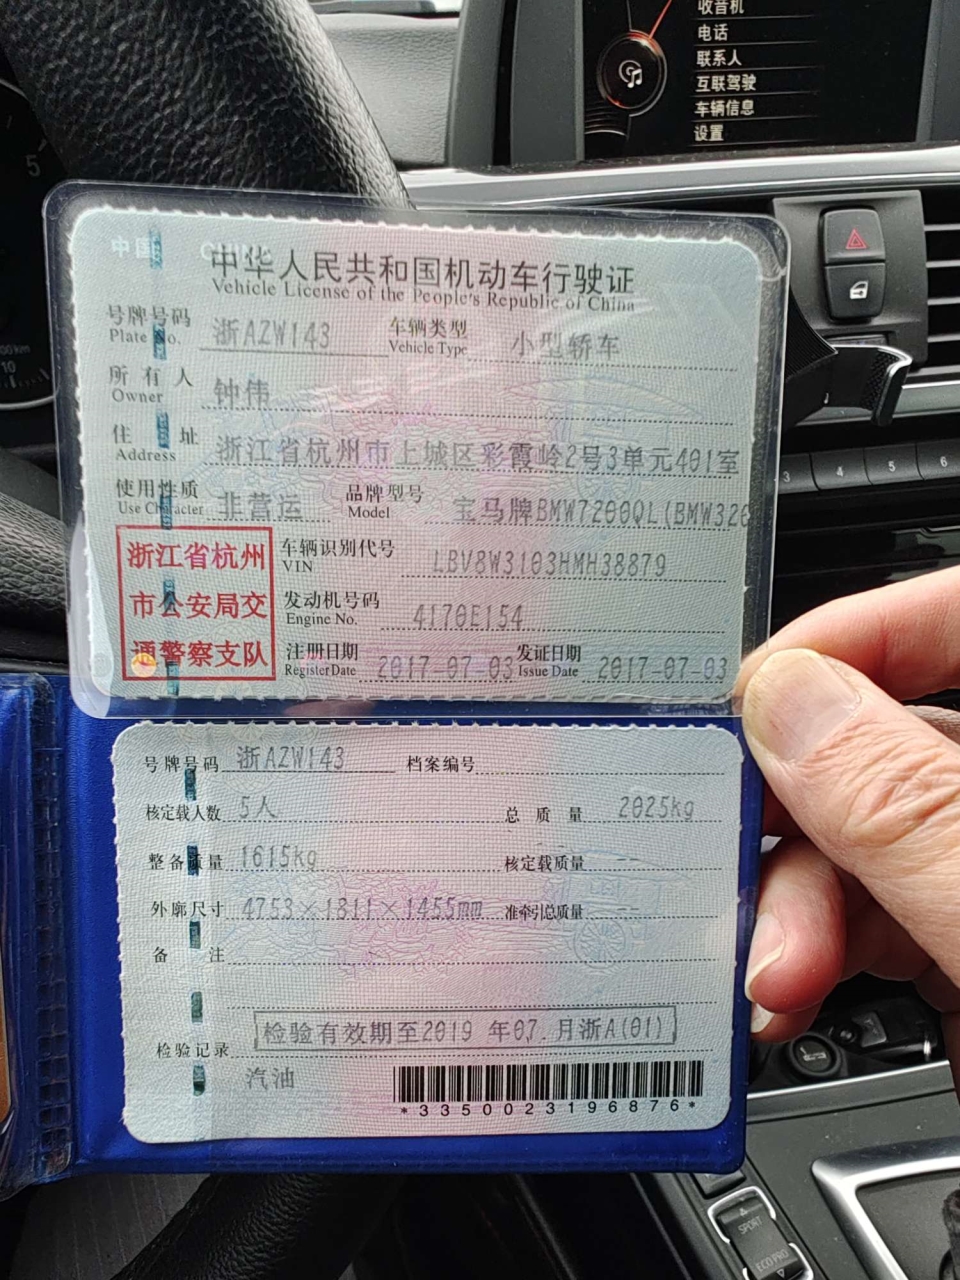 收音机
电话
联系人
互联驾驶
车辆信息
设置
5
10
中国 CHINA
中华人民共和国机动车行驶证
Vehicle License of the People's Republic of China
号牌号码 浙AZW143 车辆类型 小型轿车
Plate No. Vehicle Type
所有人 钟伟
Owner
住址 浙江省杭州市上城区彩霞岭2号3单元401室
Address
使用性质 非营运 品牌型号 宝马牌BMW7200QL(BMW320
Use Character Model
浙江省杭州
市公安局交
通警察支队
车辆识别代号 LBV8W3103HMH38879
VIN
发动机号码 4170E154
Engine No.
注册日期 2017-07-03 发证日期 2017-07-03
Register Date Issue Date
3 4 5 6
号牌号码 浙AZW143 档案编号
核定载人数 5人 总质量 2025kg
整备质量 1615kg 核定载质量 --
外廓尺寸 4753×1811×1455mm 准牵引总质量 --
备注
检验有效期至2019 年07.月浙A(01)
检验记录
汽油
*3350023196876*
SPORT
ECO PRO